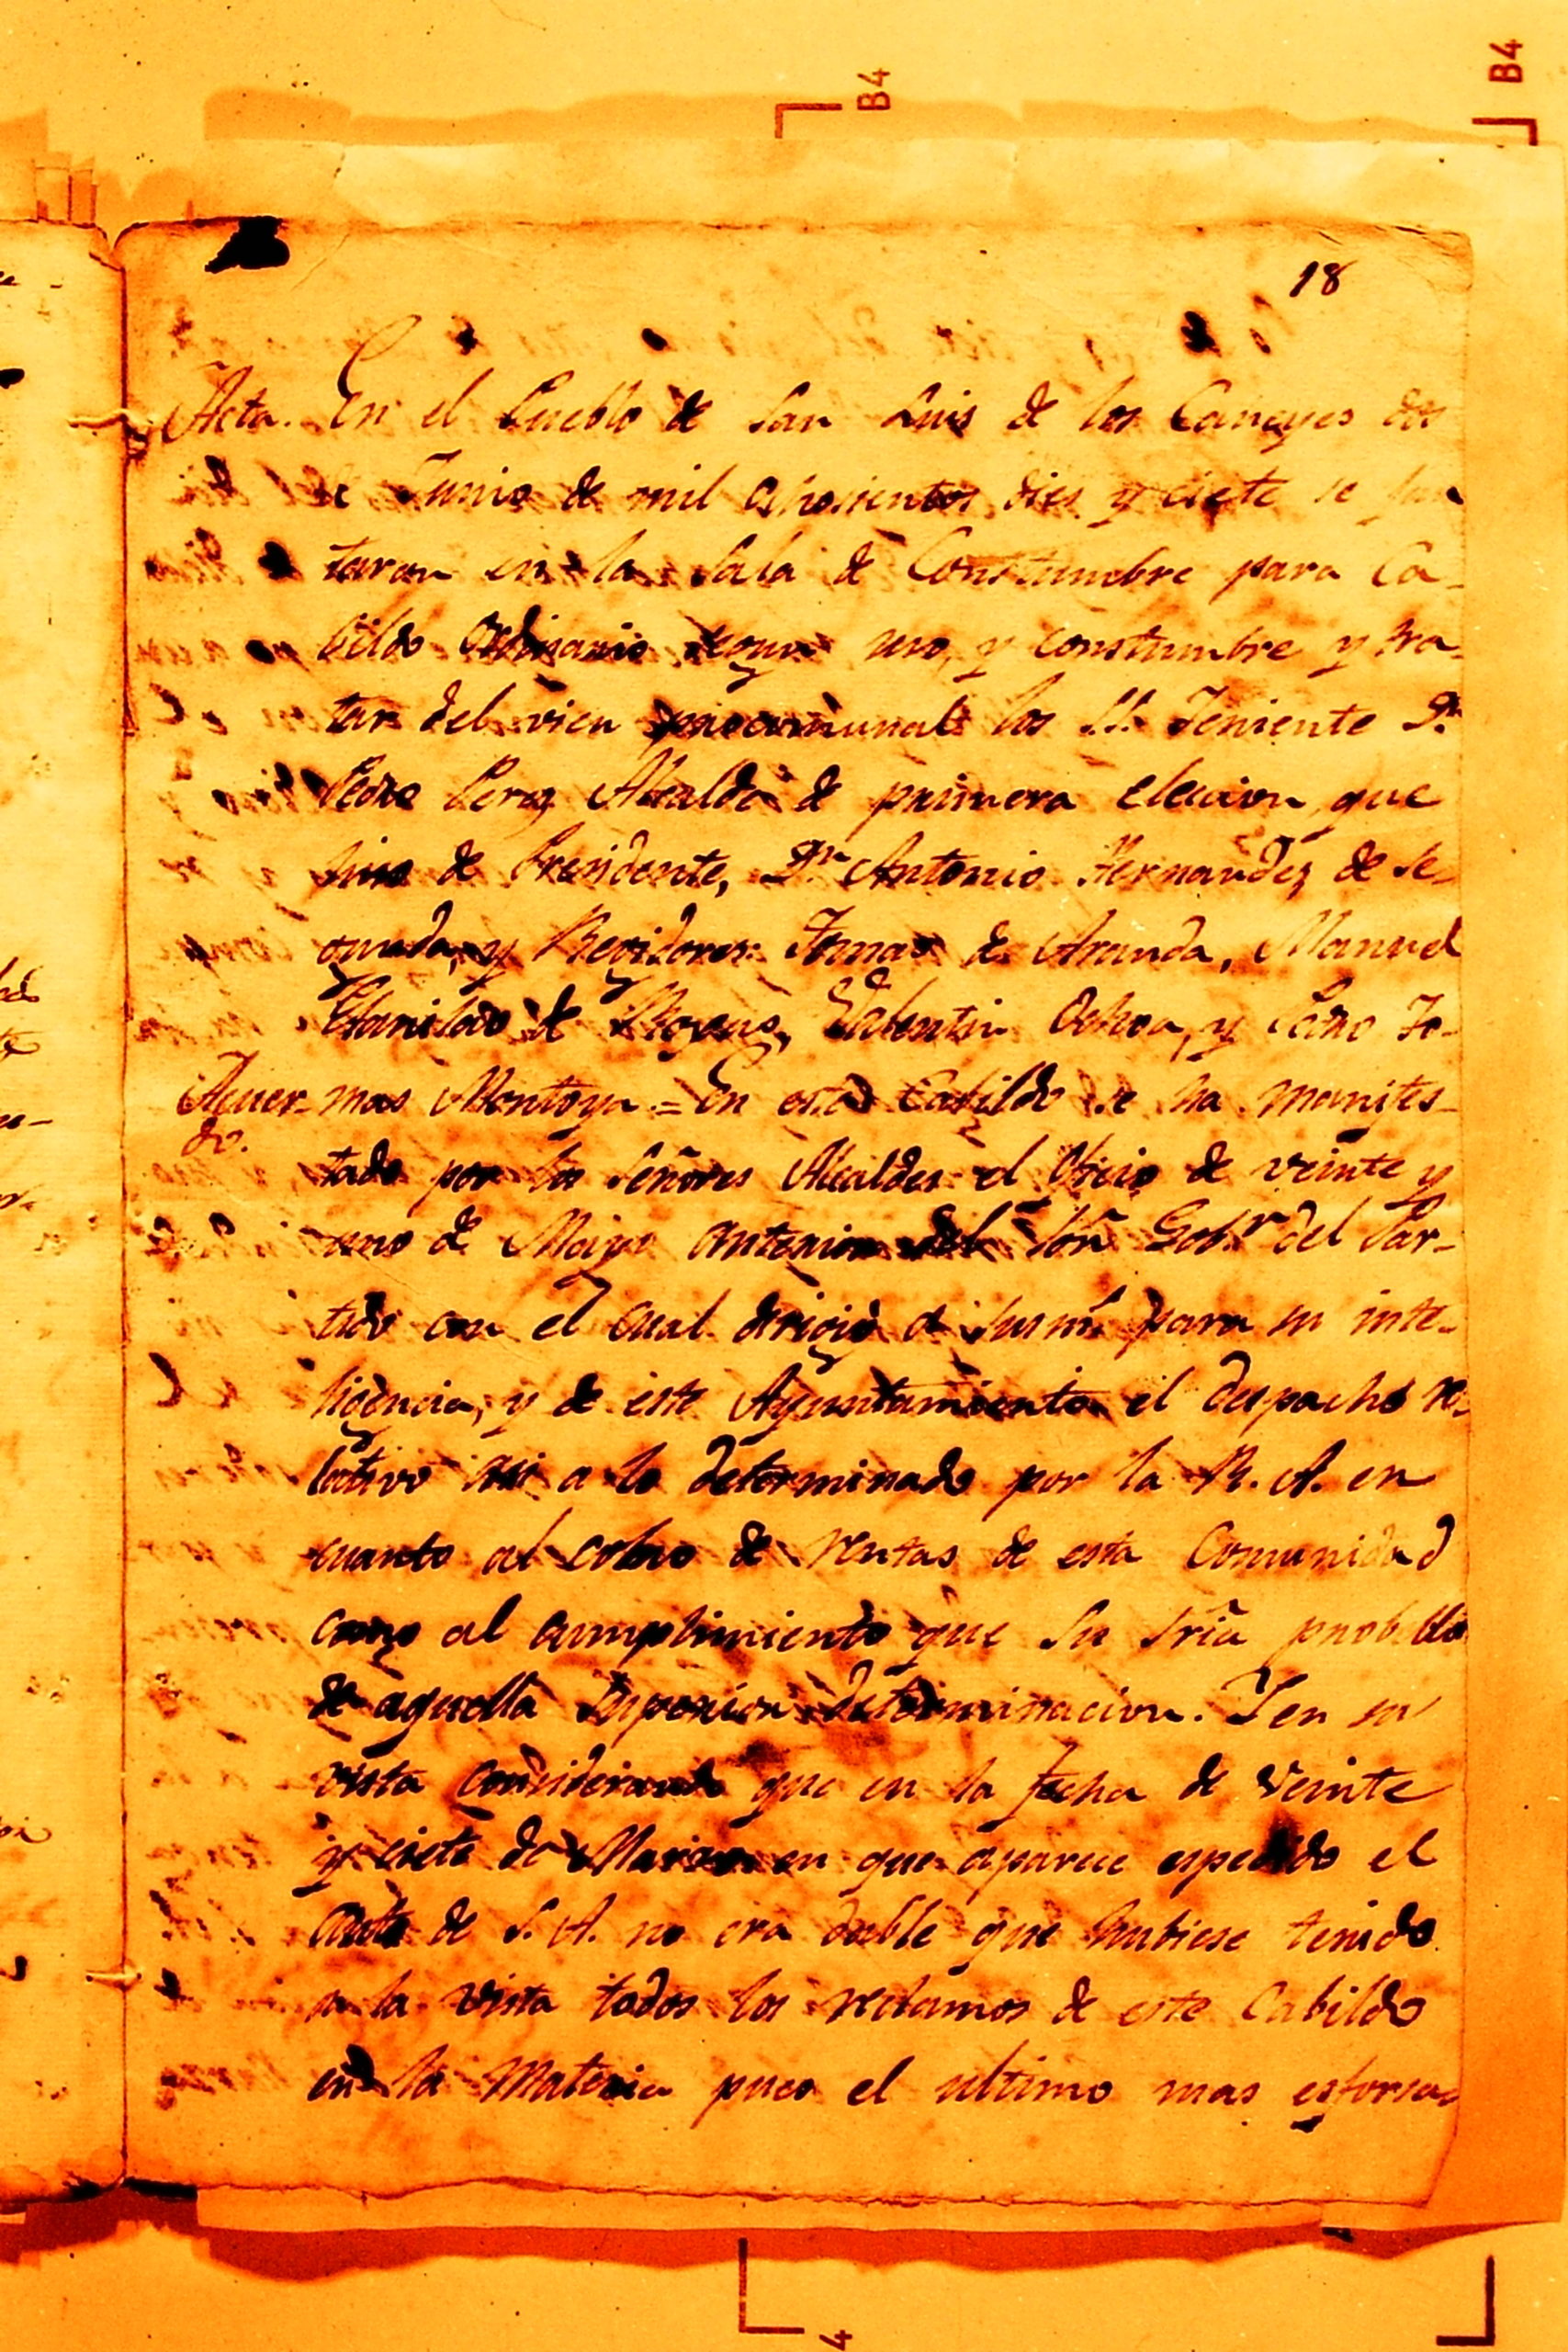 B4
B4
18
Acta. En el Pueblo de San Luis de los Caneyes dos
de Junio de mil ochosientos dies y ciete se jun
taron en la Sala de Constumbre para Ca-
bildo Ordinario segun uso, y constumbre y tra-
tar del vien procomunal los SS. Teniente Dn
Pedro Perez Alcalde de primera elecion, que
hiso de Precidente, Dn Antonio Hernandez de Se-
gunda, y Regidores: Tomas de Aranda, Manuel
Estanislado de Moyeno, Valentin Ochoa, y Pedro To-
Acuer- mas Montoya = En este Cabildo se ha manifes-
do.
tado por los Señores Alcaldes el Oficio de veinte y
uno de Mayo anterior del Sōr Gobr del Par-
tido con el cual dirigió a para su inte-
ligencia, y de este Ayuntamiento el despacho re-
lativo asi a lo determinado por la R. A. en
cuanto al cobro de rentas de esta Comunidad
como al cumplimiento que Su Sria probello
de aquella Superior determinacion. Y en su
vista considerando que en la fecha de Veinte
y ciete de Marzo en que aparece espedido el
auto de S. A. no era dable que hubiese tenido
a la vista todos los reclamos de este Cabildo
en la Materia pues el ultimo mas esforsad
4